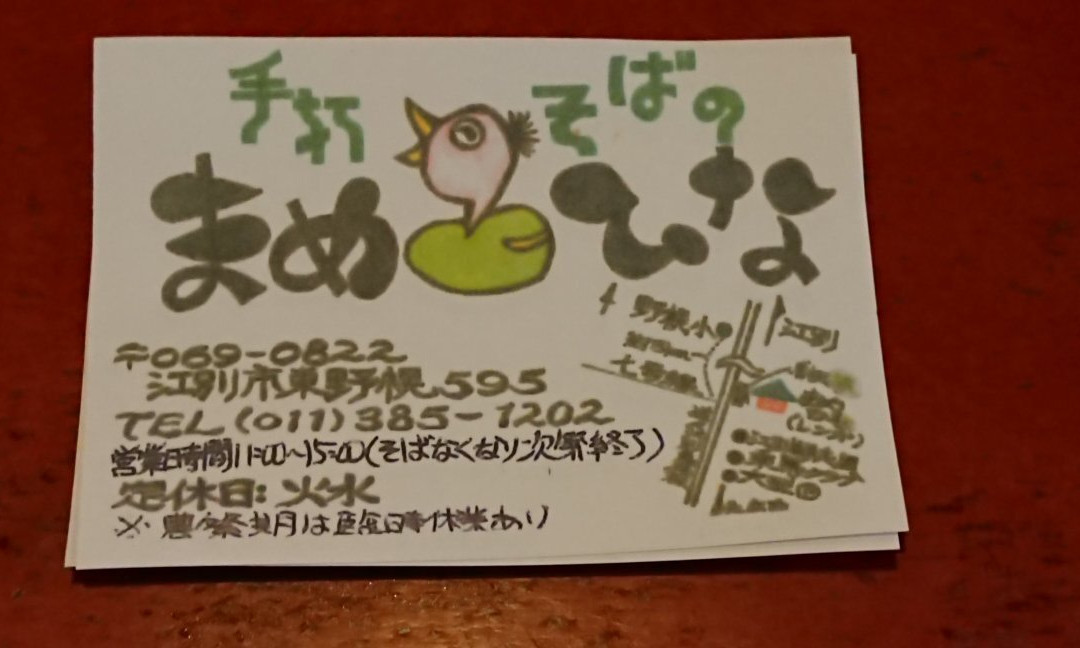 手打そばの
まめひな
〒069-0822
江別市東野幌595
TEL(011)385-1202
営業時間11:00~15:00(そばなくなり次第終了)
定休日:火水
※農繁期は臨時休業あり
野幌小
江別
七号線